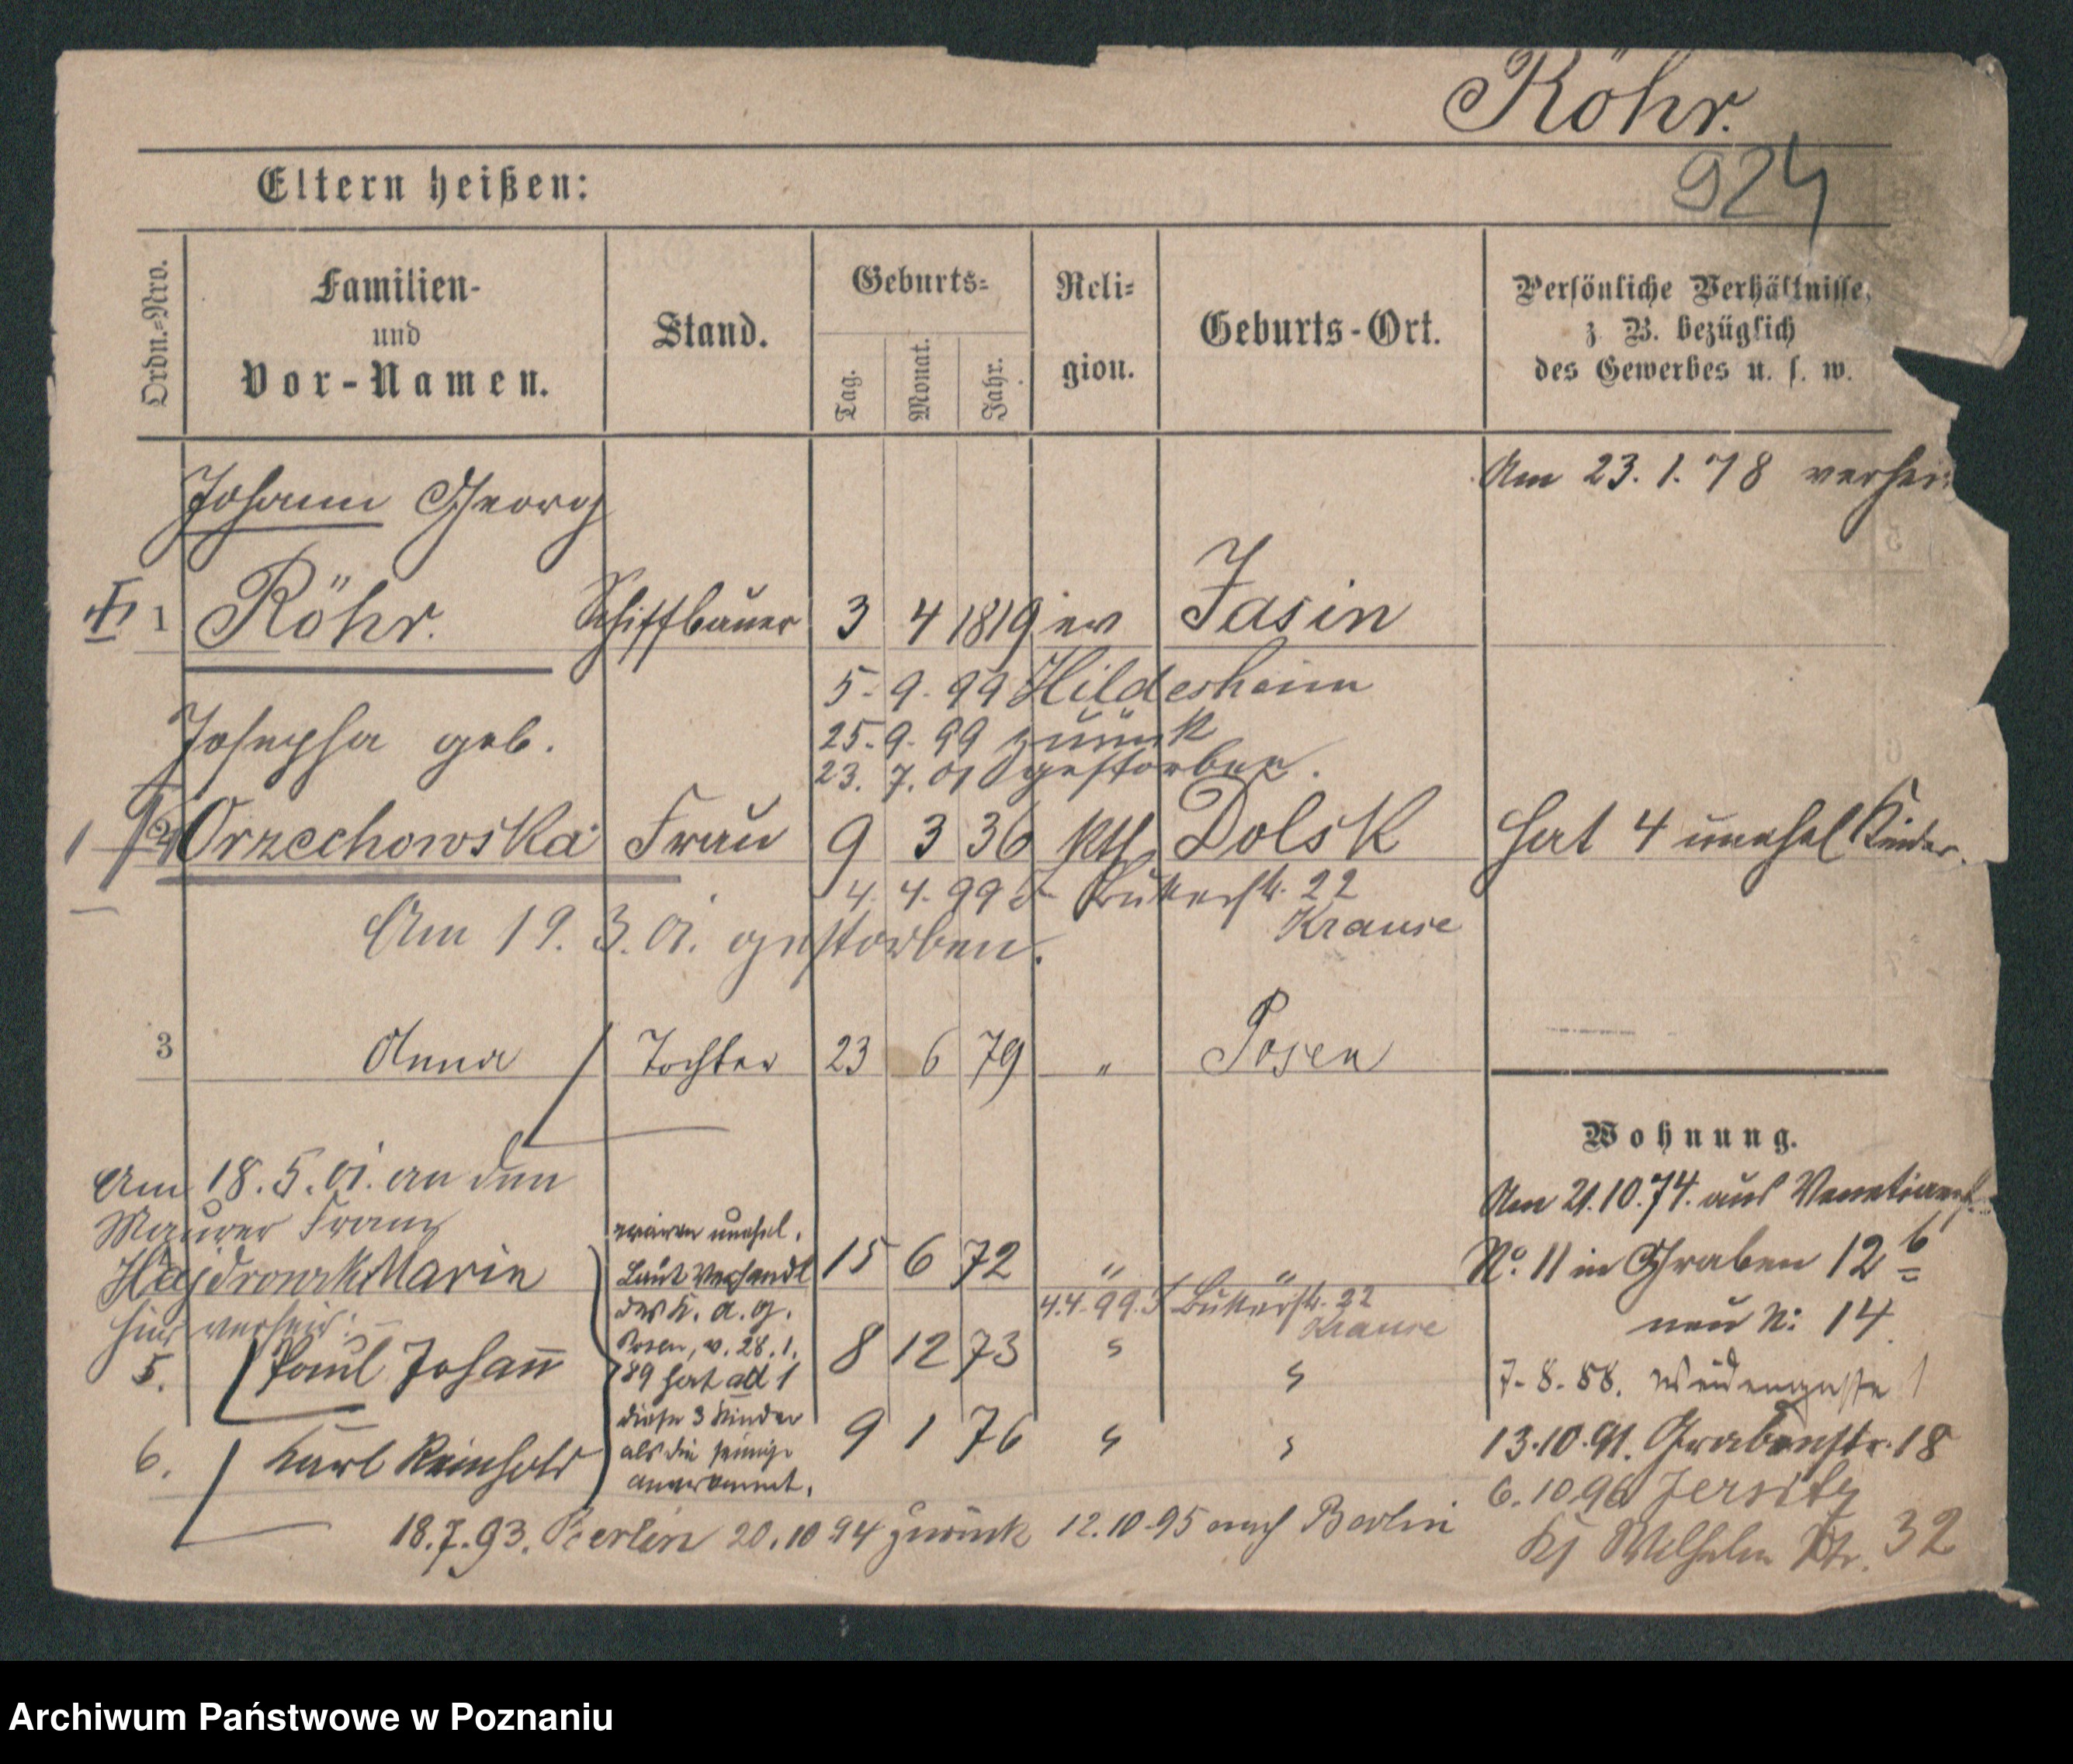 Röhr.
924
Eltern heißen:
Ordn.-Nro.
Familien-
und
Vor-Namen.
Stand.
Geburts-
Tag.
Monat.
Jahr.
Reli-
gion.
Geburts-Ort.
Persönliche Verhältnisse,
z. B. bezüglich
des Gewerbes u. s. w.
Am 23. 1. 78 verhei
Johann Georg
1 Röhr. Schiffbauer 3 4 1819 ev Jasin
5. 9. 99 Hildesheim
25. 9. 99 zurück
23. 7. 01 gestorben.
Josepha geb.
1 2 Orzechowska Frau 9 3 36 kth Dolsk hat 4 unehel Kinder.
4. 4. 99 Butterstr. 22
Krause
Am 19. 3. 01. gestorben.
3 Anna Tochter 23 6 79 " Posen
Wohnung.
Am 21.10.74. aus Venetianerst
No. 11 in Graben 12 b
neu N: 14.
7. 8. 88. Weidengasse 1
13.10.91. Grabenstr. 18
6.10 96 Jersitz
Ks Wilhelm Str. 32
Am 18. 5. 01. an den
Maurer Franz
Hajdrowski Marie 15 6 72 " "
hier verheir:
4.4.99. Butterstr. 22
Krause
5. Paul Johann 8 12 73 " "
6. Karl Reinhold 9 1 76 " "
waren unehel.
Laut Verhandl
des K. A. G.
Posen, v. 28. 1.
89 hat ad 1
diese 3 Kinder
als die seinige
anerkannt.
18.7.93. Berlin 20.10 94 zurück 12.10.95 nach Berlin
Archiwum Państwowe w Poznaniu